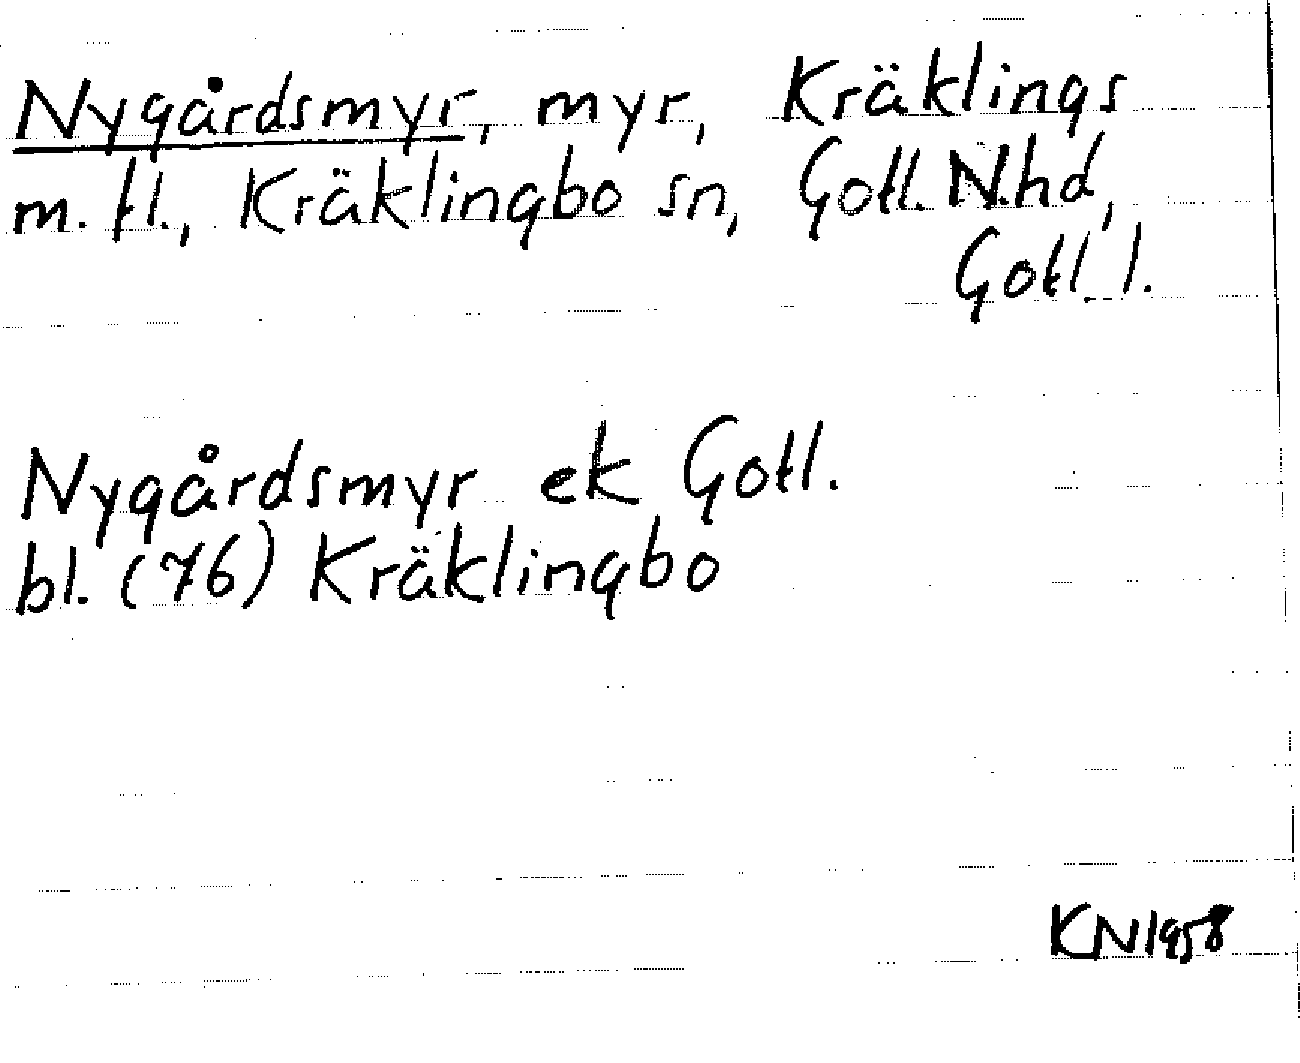 Nygårdsmyr, myr, Kräklings
m. fl., Kräklingbo sn, Gotl. N. hd,
Gotl. l.
Nygårdsmyr ek Gotl.
bl. (76) Kräklingbo
KN 1958